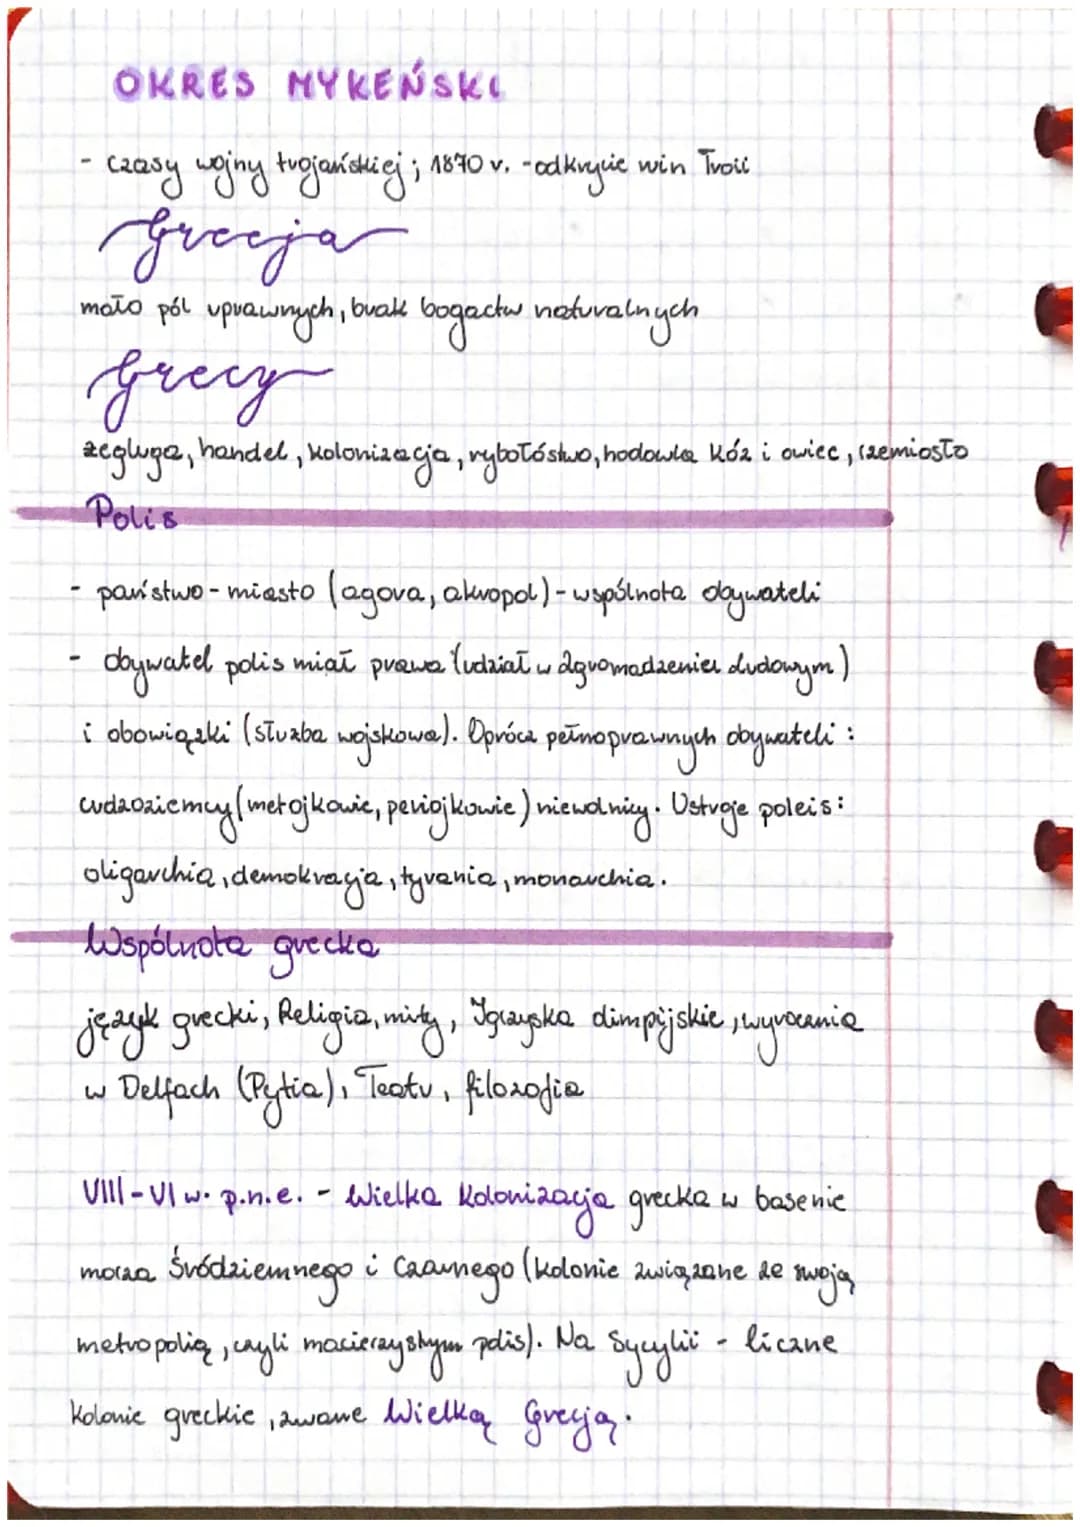 OKRES MYKEŃSKI
- czasy wojny trojańskiej; 1870 r. - odkrycie ruin Troii
Grecja
mało pól uprawnych, brak bogactw naturalnych
Grecy
żegluga, handel, kolonizacja, rybołóstwo, hodowla kóz i owiec, rzemiosło
Polis
- państwo-miasto (agora, akropol) - wspólnota obywateli
- obywatel polis miał prawa (udział w zgromadzeniu ludowym)
i obowiązki (służba wojskowa). Oprócz pełnoprawnych obywateli:
cudzoziemcy (metojkowie, periojkowie) niewolnicy. Ustroje poleis:
oligarchia, demokracja, tyrania, monarchia.
Wspólnota grecka
język grecki, Religia, mity, Igrzyska olimpijskie, wyrocznia
w Delfach (Pytia), Teatr, filozofia
VIII-VI w. p.n.e. - Wielka Kolonizacja grecka w basenie
morza Śródziemnego i Czarnego (kolonie związane ze swoją
metropolią, czyli macierzystym polis). Na Sycylii - liczne
kolonie greckie, zwane Wielką Grecją.